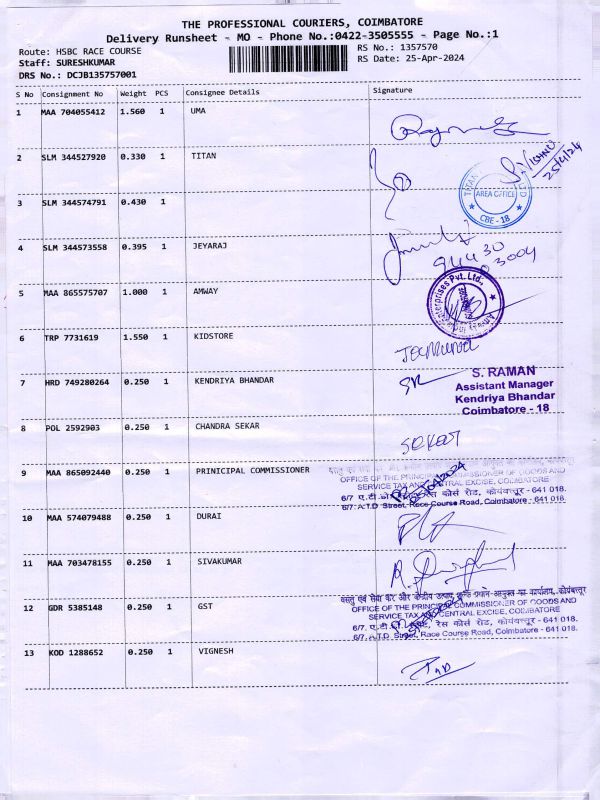 THE PROFESSIONAL COURIERS, COIMBATORE
Delivery Runsheet - MO - Phone No.:0422-3505555 - Page No.:1
Route: HSBC RACE COURSE
RS No.: 1357570
Staff: SURESHKUMAR
RS Date: 25-Apr-2024
DRS No.: DCJB135757001
S No Consignment No Weight PCS Consignee Details Signature
1 MAA 704055412 1.560 1 UMA
2 SLM 344527920 0.330 1 TITAN
25/4/24
AREA OFFICE
CBE - 18
3 SLM 344574791 0.430 1
4 SLM 344573558 0.395 1 JEYARAJ
94430
03004
5 MAA 865575707 1.000 1 AMWAY
Enterprises Pvt. Ltd.,
6 TRP 7731619 1.550 1 KIDSTORE
7 HRD 749280264 0.250 1 KENDRIYA BHANDAR
S. RAMAN
Assistant Manager
Kendriya Bhandar
Coimbatore - 18
8 POL 2592903 0.250 1 CHANDRA SEKAR
9 MAA 865092440 0.250 1 PRINICIPAL COMMISSIONER
OFFICE OF THE PRINCIPAL COMMISSIONER OF GOODS AND
SERVICE TAX AND CENTRAL EXCISE, COIMBATORE
6/7 ए.टी. रेस कोर्स रोड, कोयंबत्तूर - 641 018.
6/7. A.T.D Street, Race Course Road, Coimbatore - 641 018.
10 MAA 574079488 0.250 1 DURAI
11 MAA 703478155 0.250 1 SIVAKUMAR
12 GDR 5385148 0.250 1 GST
वस्तु एवं सेवा कर और केंद्रीय उत्पाद शुल्क प्रधान आयुक्त का कार्यालय, कोयंबत्तूर
OFFICE OF THE PRINCIPAL COMMISSIONER OF GOODS AND
SERVICE TAX AND CENTRAL EXCISE, COIMBATORE
6/7. ए.टी. रेस कोर्स रोड, कोयंबत्तूर - 641 018.
6/7. A.T.D. Street, Race Course Road, Coimbatore - 641 018.
13 KOD 1288652 0.250 1 VIGNESH